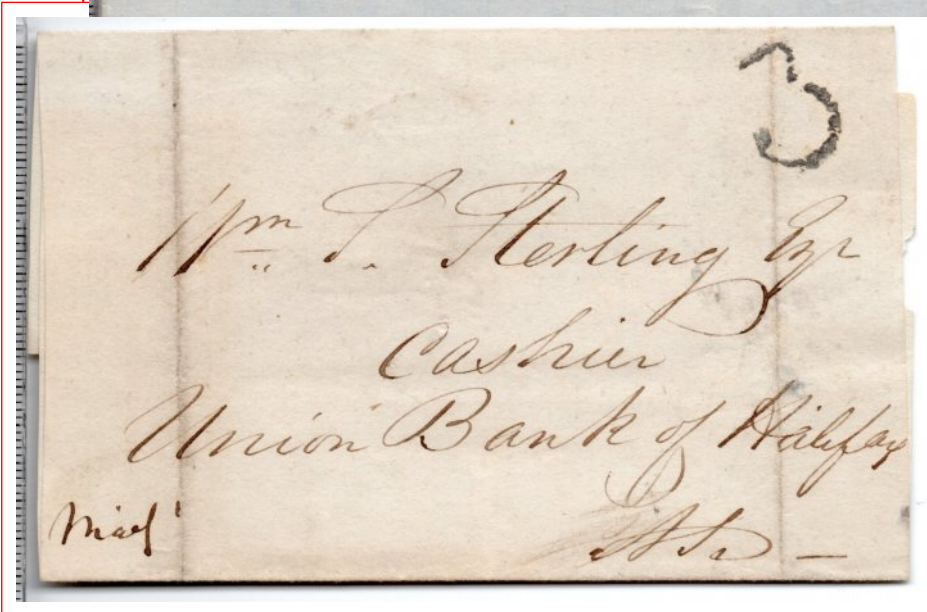 3
Wm S. Sterling Esqr
Cashier
Union Bank of Halifax
N.S.